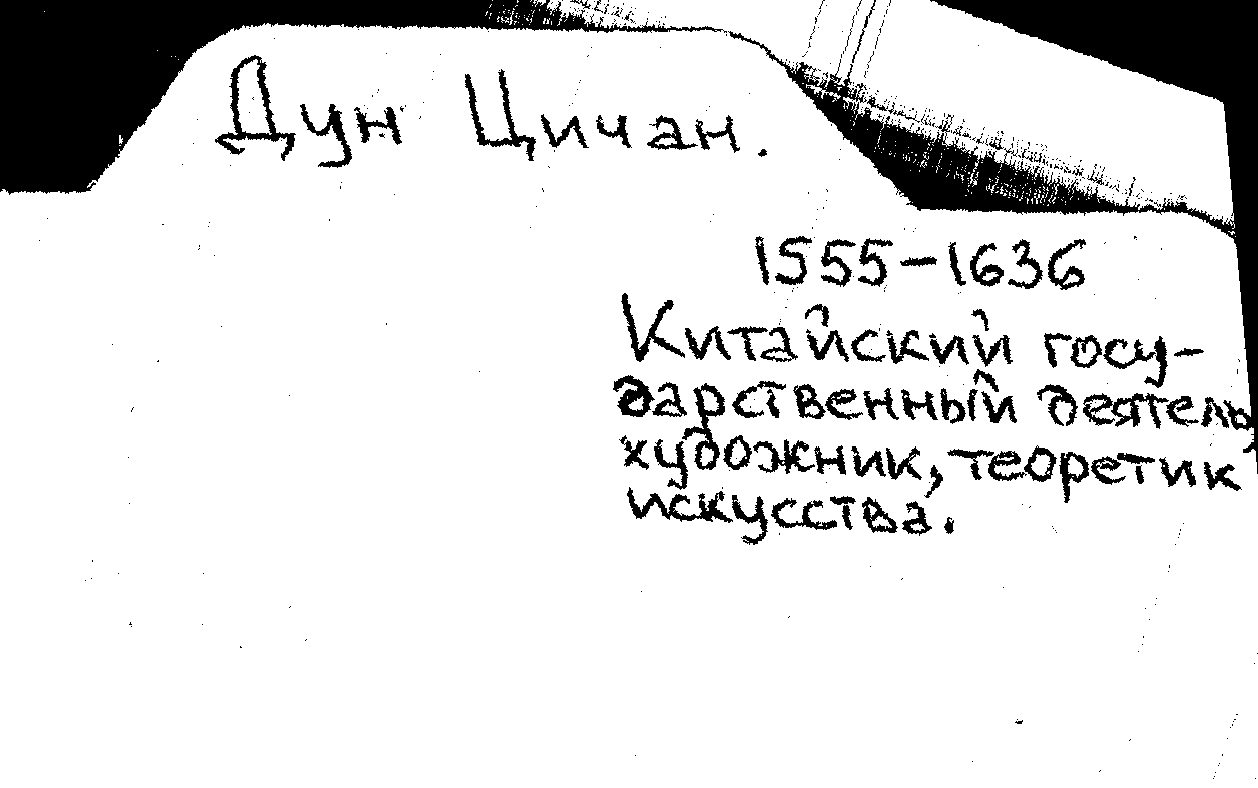 Дун Цичан.
1555-1636
Китайский госу-
дарственный деятель,
художник, теоретик
искусства.